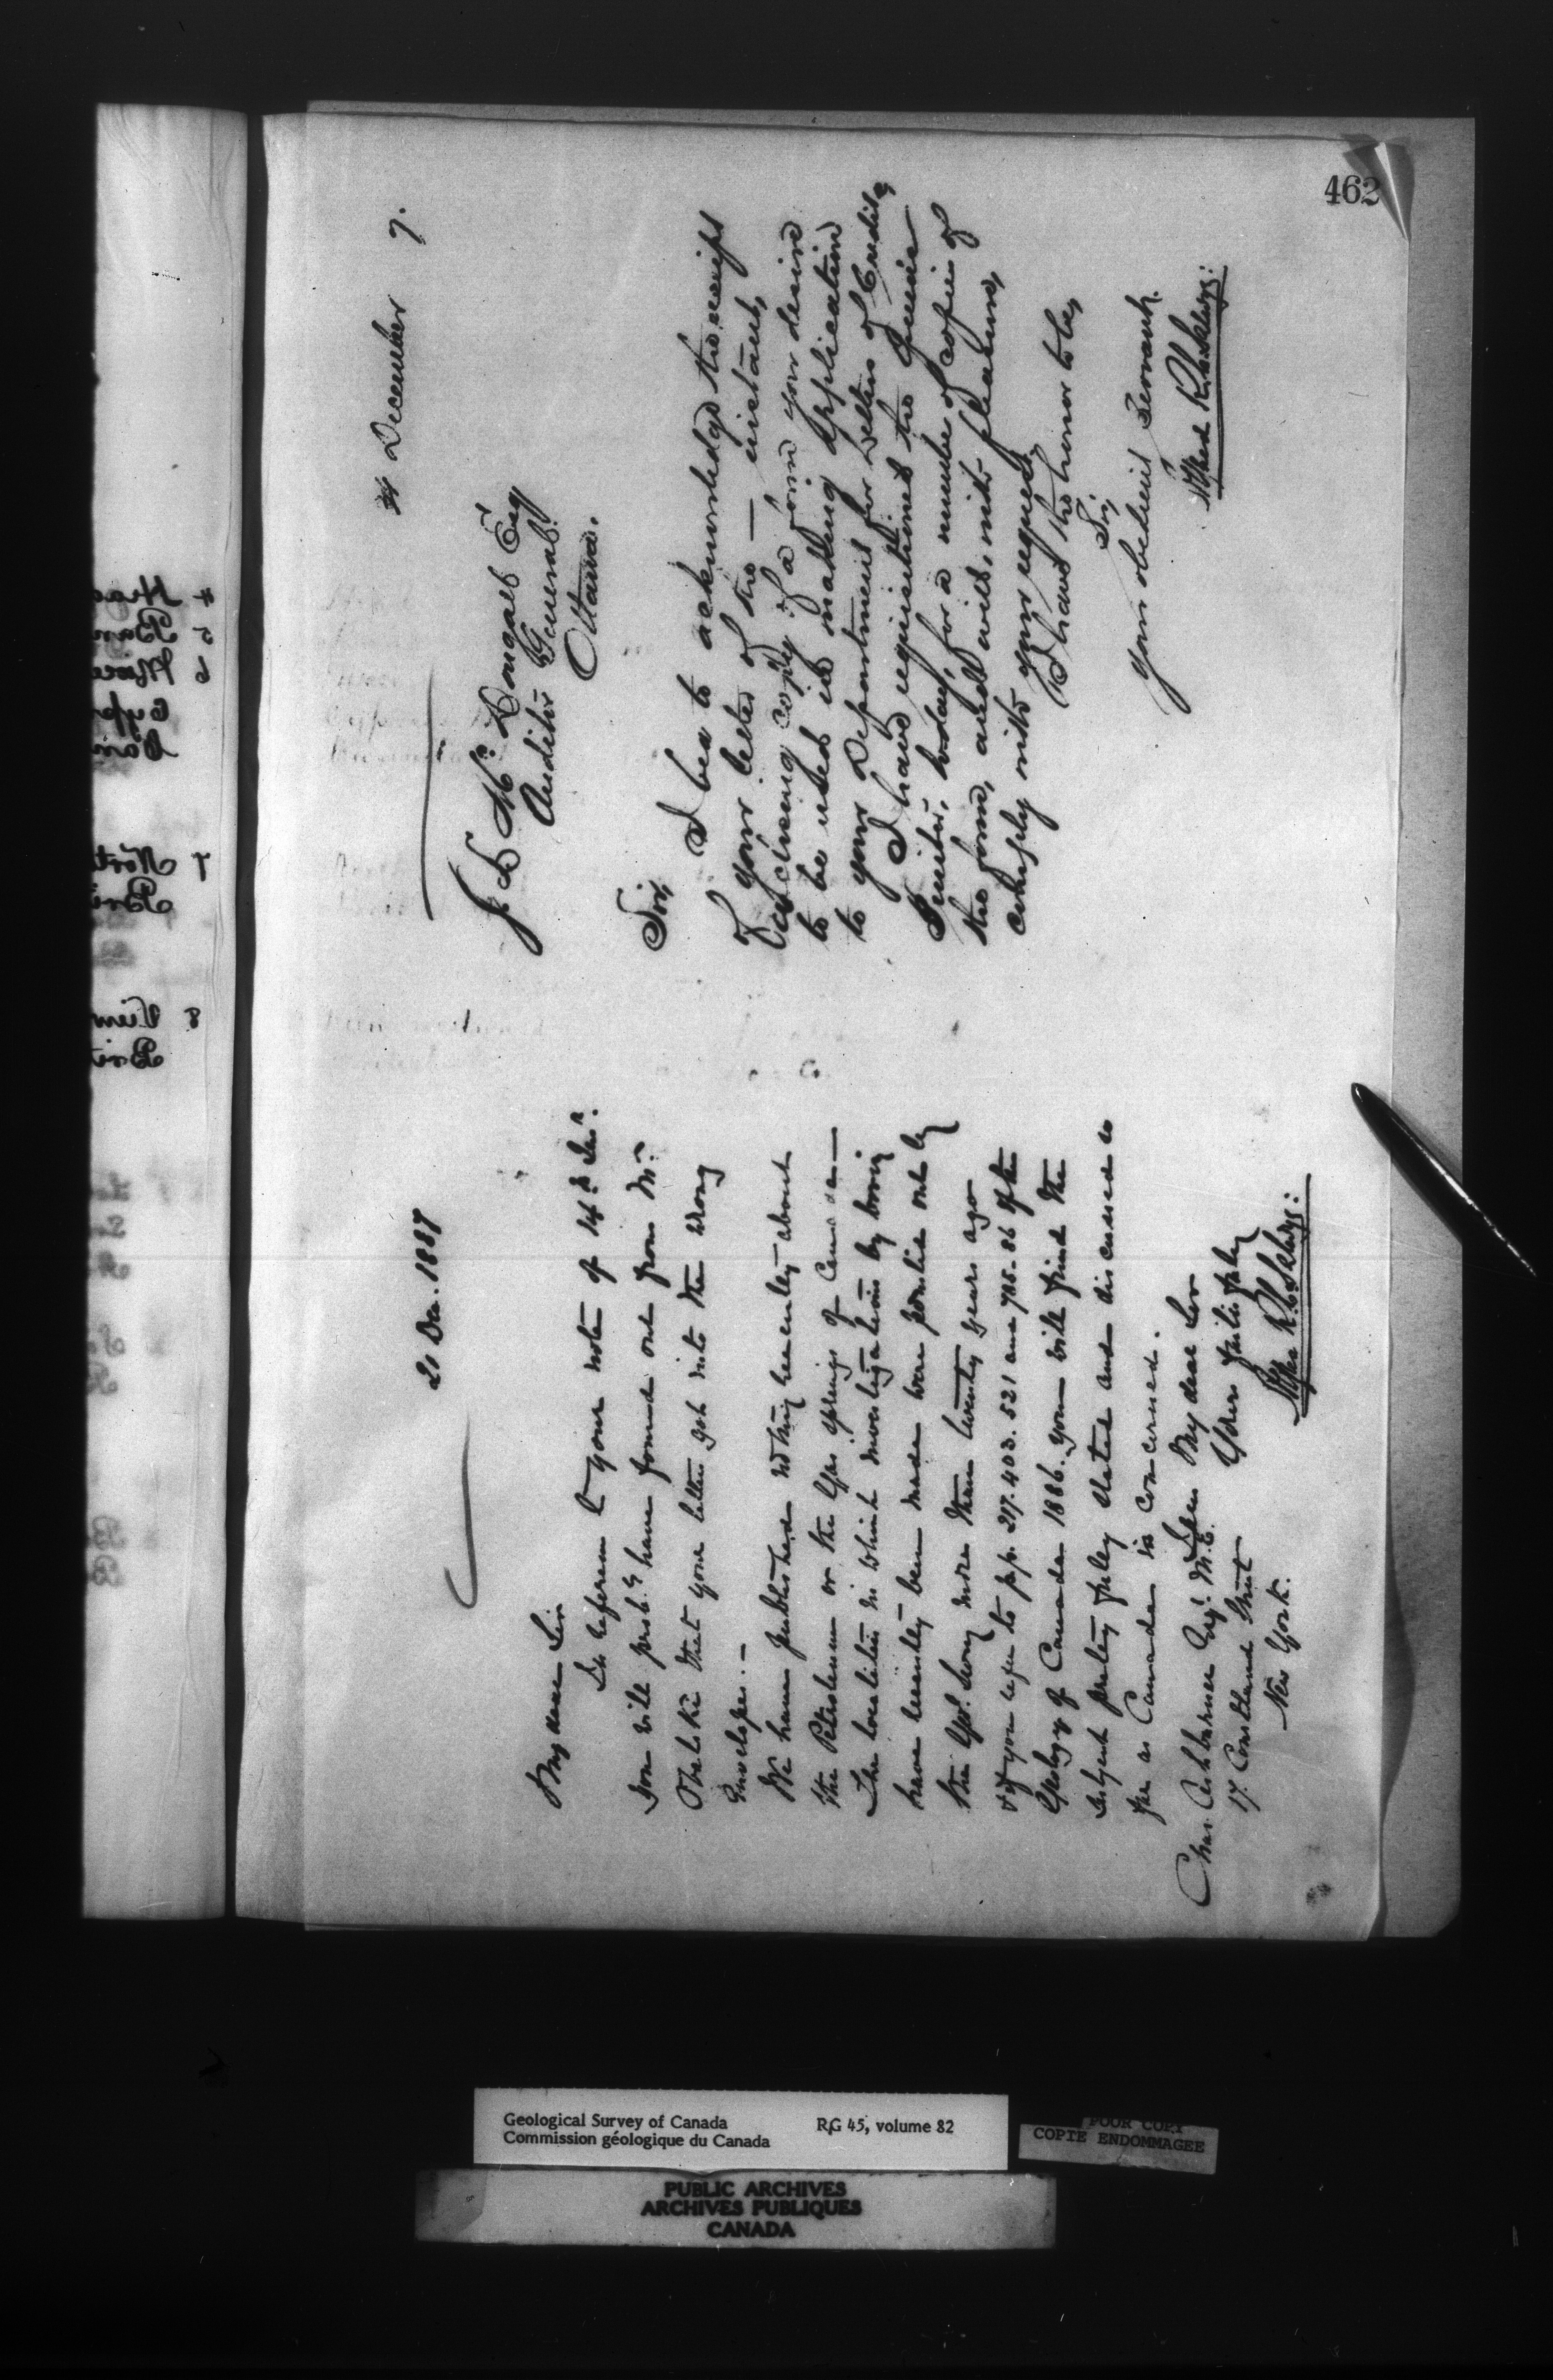 462
21 Dec. 1887
My dear Sir
In reference to your note of 14th Inst.
you will prob.y have found out from Mr.
Obalski that your letter got into the wrong
envelope. —
We have published nothing recently about
the Petroleum or the Gas springs of Canada —
The localities in which investigations by boring
have recently been made were pointed out by
the Geol. Survey more than twenty years ago
& if you refer to pp. 217. 403. 521 and 785-86 of the
Geology of Canada 1886. you will find the
subject pretty fully stated and discussed so
far as Canada is concerned.
My dear Sir
Yours faithfully
Alfred R. C. Selwyn
Chas. Ashburner Esq. M.E.
17 Courtland Street
New York.
December 7.
J. L. McDougall Esq
Auditor General
Ottawa.
Sir,
I beg to acknowledge the receipt
of your letter of the — instant,
Enclosing copy of a form you desire
to be used in making Application
to your Department for Letters of Credit,
I have requisitioned the Queen's
Printer, today, for a number of copies of
the form, and will, with pleasure,
comply with your request.
I have the honor to be,
Sir
Your obedient Servant.
Alfred R. C. Selwyn
4
5
6
7
8
Geological Survey of Canada RG 45, volume 82
Commission géologique du Canada
POOR COPY
COPIE ENDOMMAGEE
PUBLIC ARCHIVES
ARCHIVES PUBLIQUES
CANADA